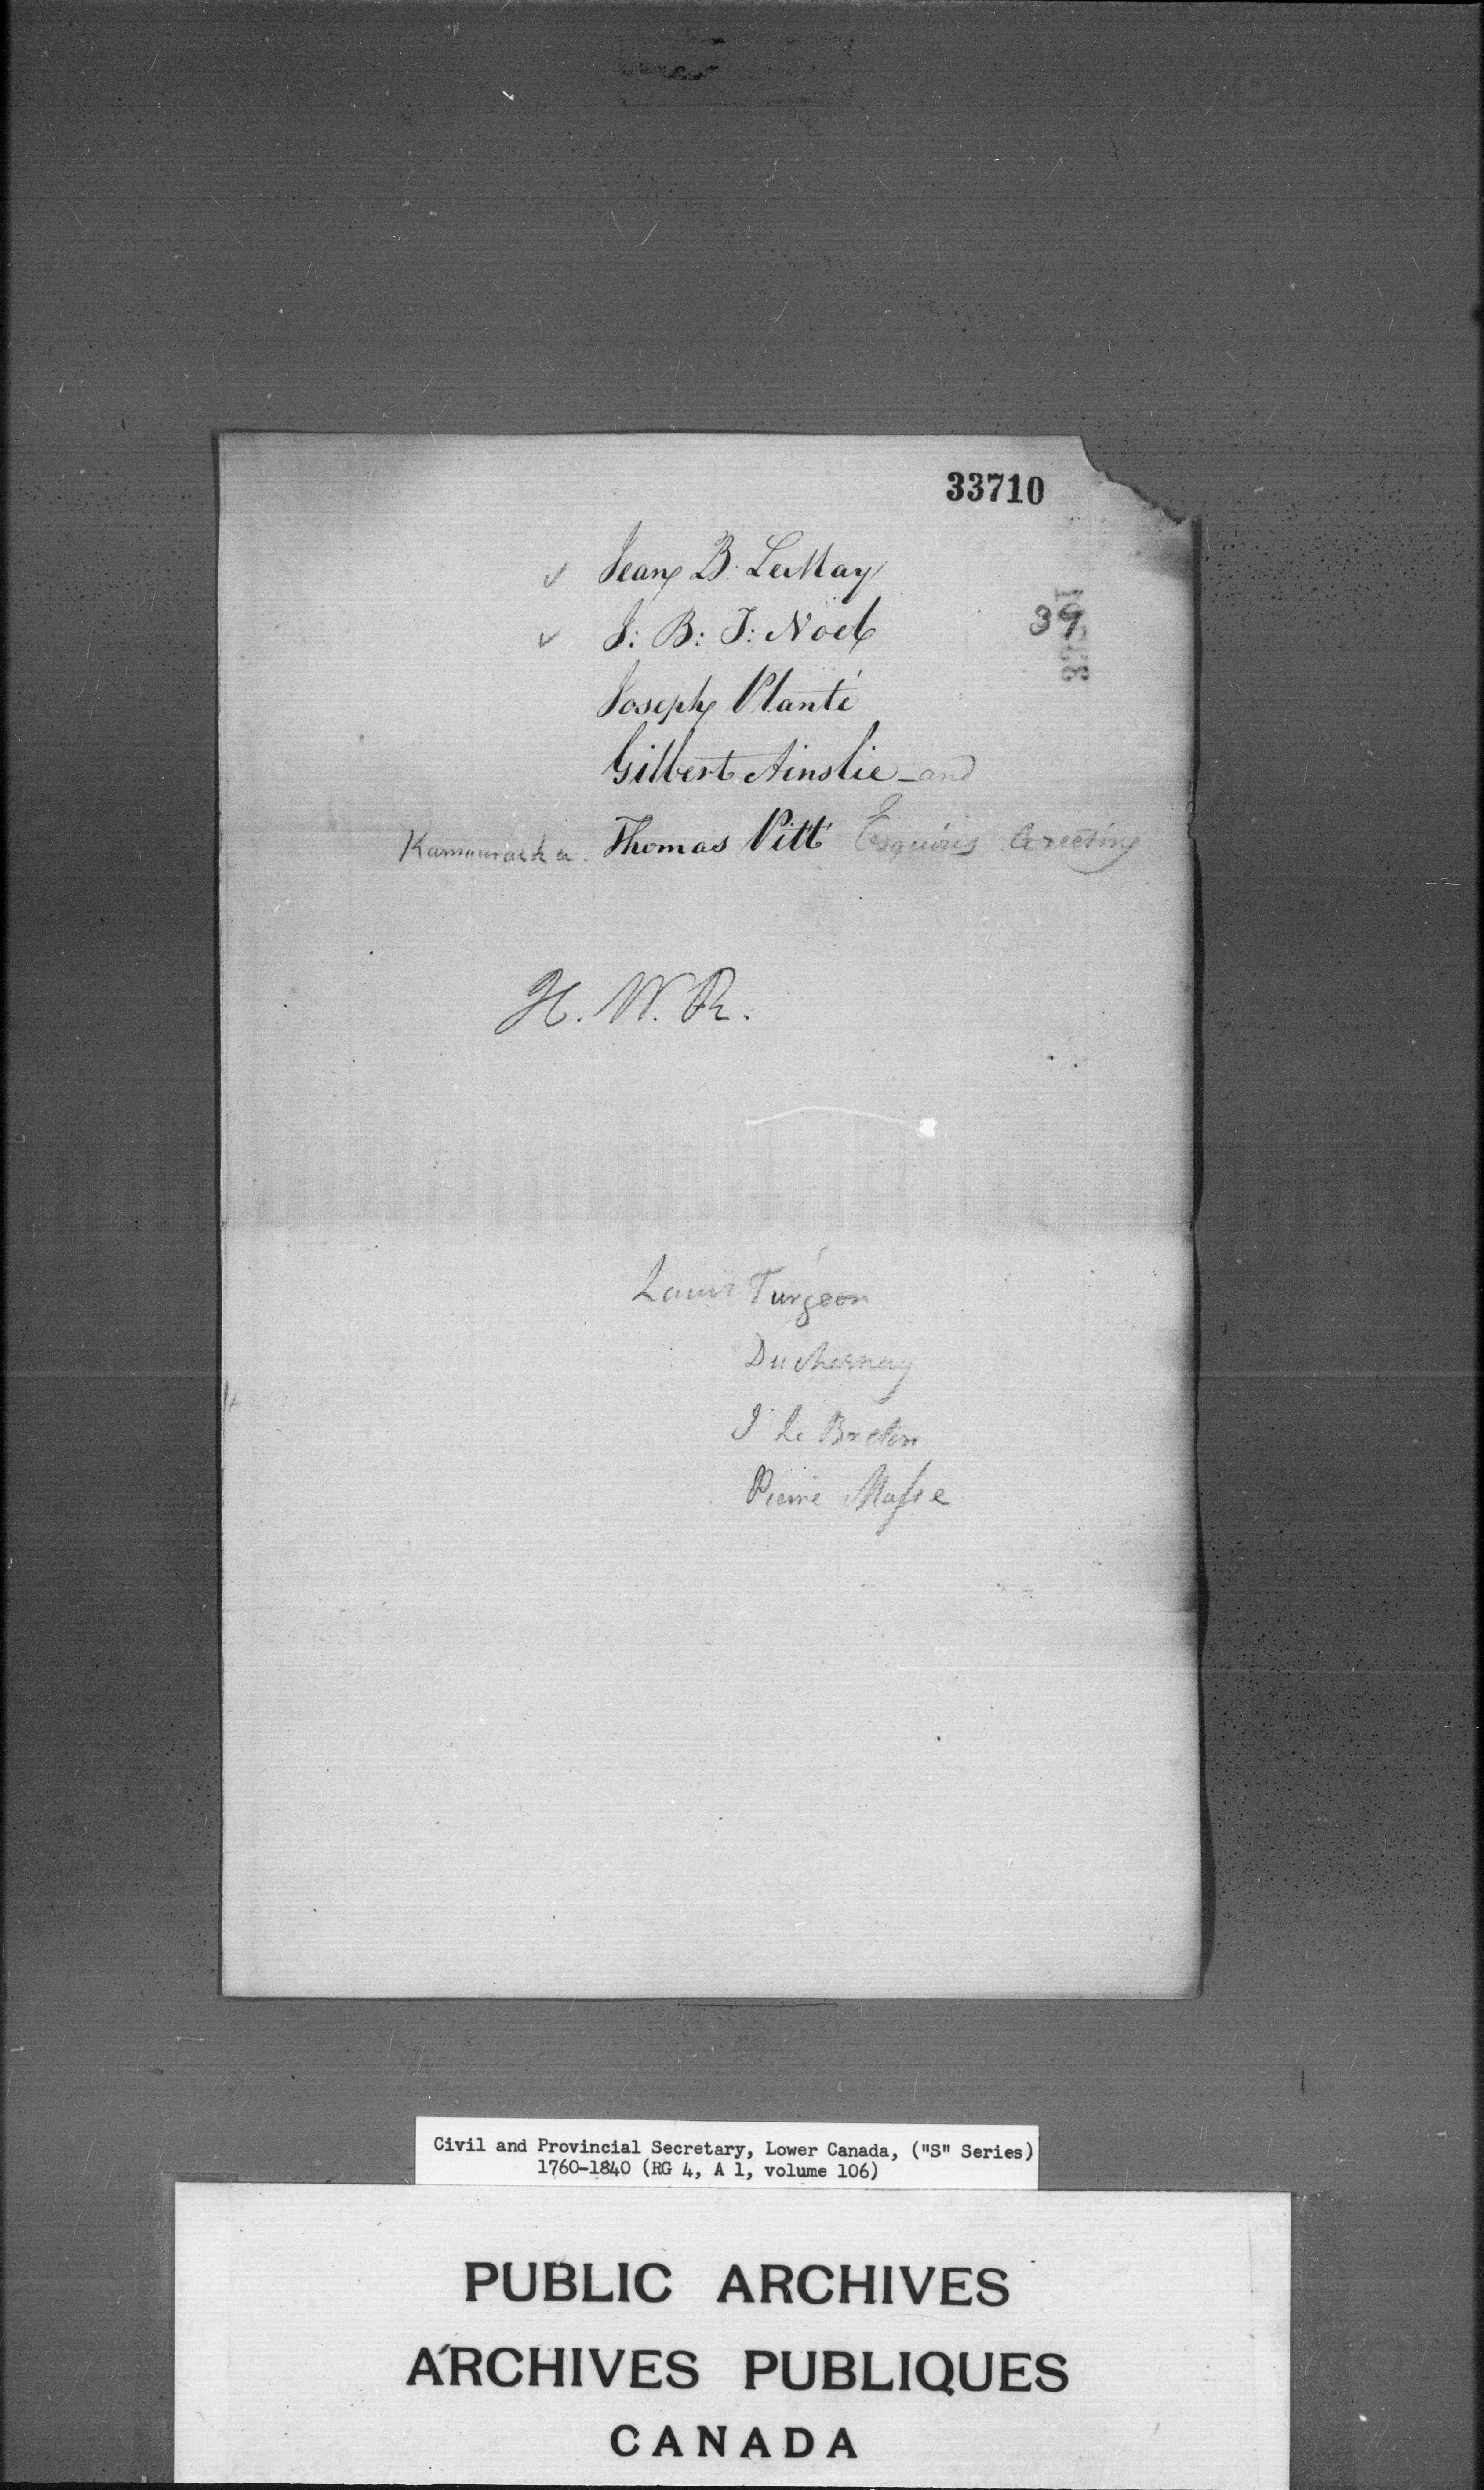 33710
✓ Jean B. LeMay
✓ J: B: J: Noël
39
Joseph Planté
Gilbert Ainslie - and
Kamouraska. Thomas Pitt Esquires Greeting
H. W. R.
Louis Turgeon
Duchesnay
J Le Breton
Pierre Masse
Civil and Provincial Secretary, Lower Canada, ("S" Series)
1760-1840 (RG 4, A 1, volume 106)
PUBLIC ARCHIVES
ARCHIVES PUBLIQUES
CANADA